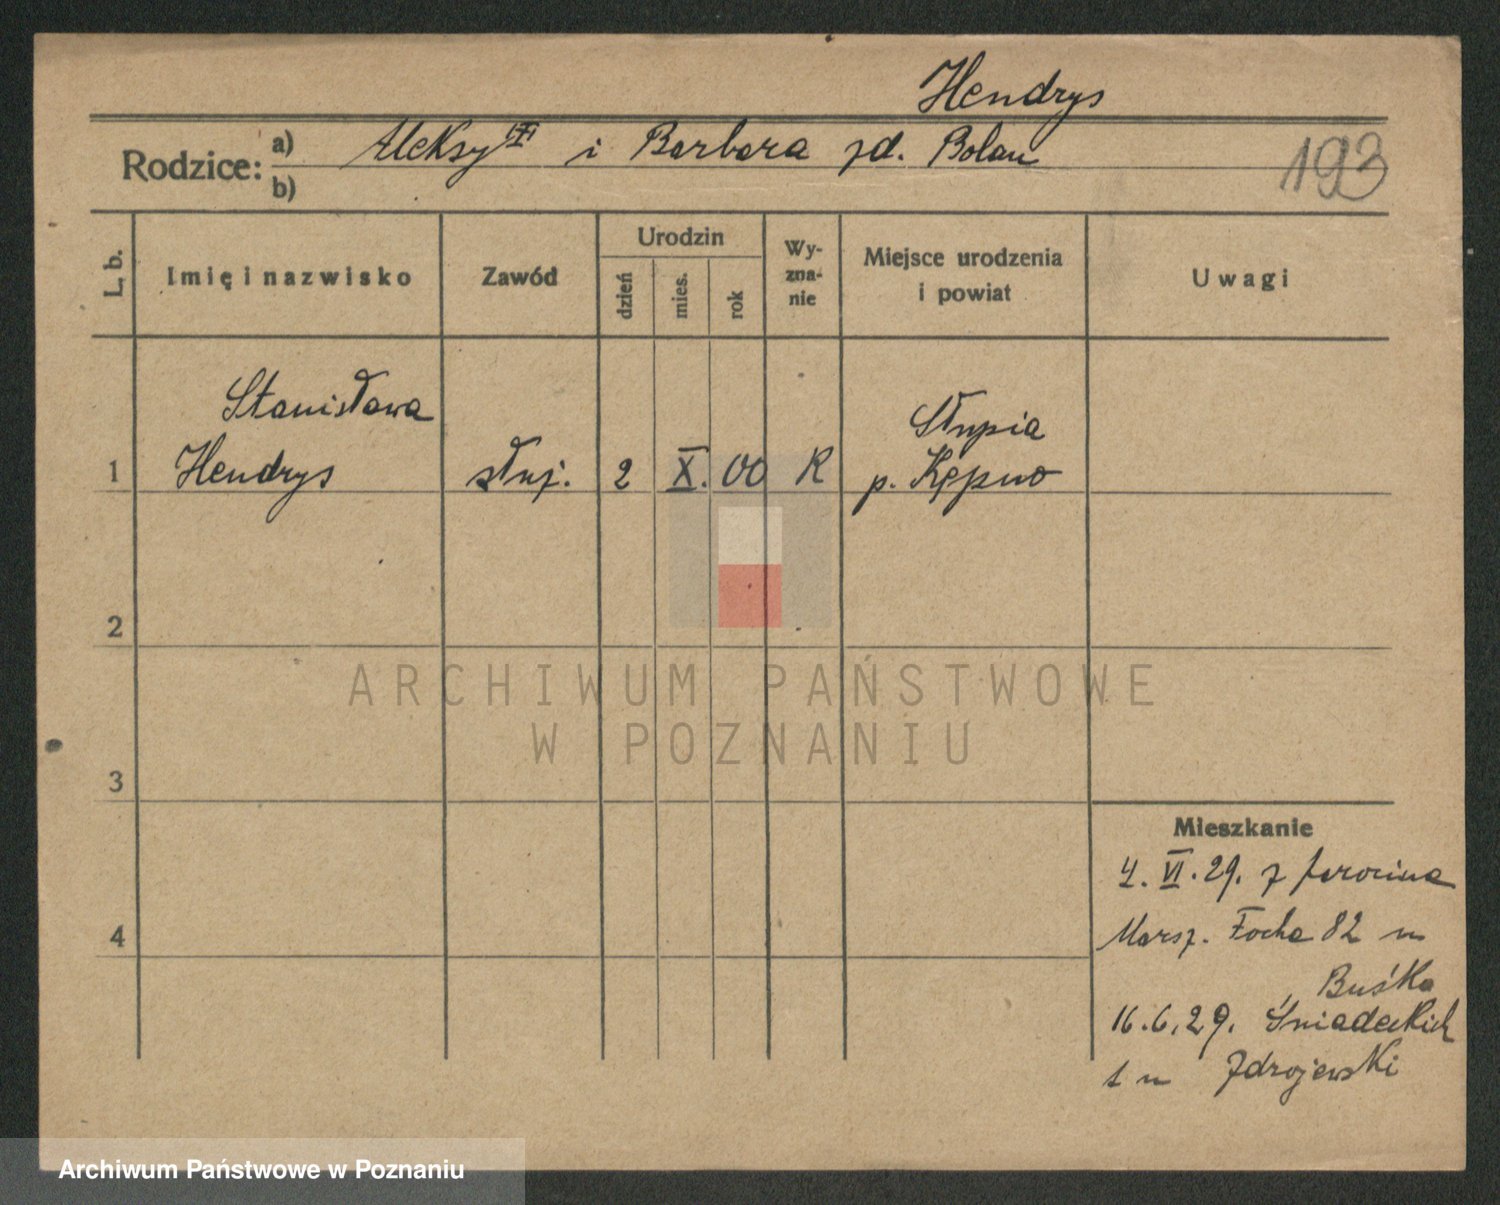 Hendrys
Rodzice: a) Aleksy i Barbara zd. Bolan
b)
193
L. b.
Imię i nazwisko
Zawód
Urodzin
dzień
mies.
rok
Wy-
zna-
nie
Miejsce urodzenia
i powiat
Uwagi
Stanisława
1 Hendrys służ. 2 X. 00 K
Słupia
p. Kępno
2
3
4
ARCHIWUM PAŃSTWOWE
W POZNANIU
Mieszkanie
4. VI. 29. z Jarocina
Marsz. Focha 82 u
Buśka
16.6.29. Śniadeckich
1 u Zdrojewski
Archiwum Państwowe w Poznaniu